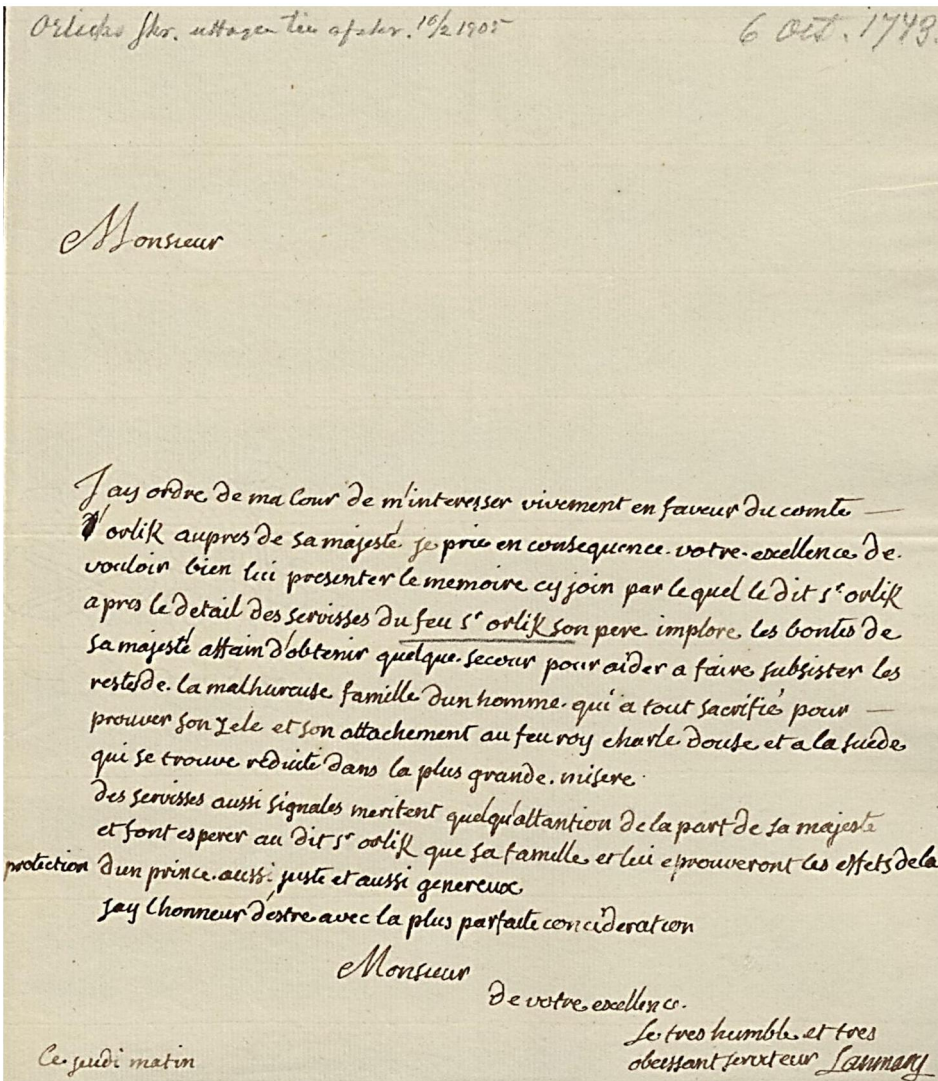 Orlicks skr. uttagen till afskr. 10/2 1905
6 Oct. 1743.
Monsieur
Jay ordre de ma Cour de m'interesser vivement en faveur du comte —
d'orlik aupres de sa majesté je prie en consequence votre excellence de
vouloir bien lui presenter le memoire cy join par lequel le dit Sr orlik
apres le detail des servisses du feu Sr orlik son pere implore les bontes de
sa majesté affain d'obtenir quelque secour pour aider a faire subsister les
restes de la malhureuse famille dun homme qui a tout sacrifié pour —
prouver son zele et son attachement au feu roy charle douse et a la suède
qui se trouve réduite dans la plus grande misere
des servisses aussi signales meritent quelqu'attantion de la part de sa majesté
et font esperer au dit Sr orlik que sa famille et lui eprouveront les effets de la
protection dun prince aussi juste et aussi genereux
Jay lhonneur d'éstre avec la plus parfaite concideration
Monsieur
de votre excellence
Le tres humble et tres
obeissant serviteur Lanmary
Ce jeudi matin